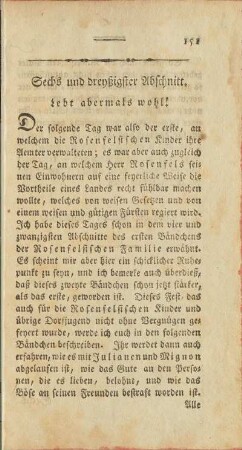 151
Sechs und dreyßigster Abschnitt.
Lebt abermals wohl!
Der folgende Tag war also der erste, an
welchem die Rosenfelsischen Kinder ihre
Aemter verwalteten; es war aber auch zugleich
der Tag, an welchem Herr Rosenfels sei-
nen Einwohnern auf eine feyerliche Weise die
Vortheile eines Landes recht fühlbar machen
wollte, welches von weisen Gesetzen und von
einem weisen und gütigen Fürsten regiert wird.
Ich habe dieses Tages schon in dem vier und
zwanzigsten Abschnitte des ersten Bändchens
der Rosenfelsischen Familie erwähnt.
Es scheint mir aber hier ein schicklicher Ruhe-
punkt zu seyn, und ich bemerke auch überdieß,
daß dieses zweyte Bändchen schon jetzt stärker,
als das erste, geworden ist. Dieses Fest, das
auch für die Rosenfelsischen Kinder und
übrige Dorfjugend nicht ohne Vergnügen ge-
feyert wurde, werde ich euch in den folgenden
Bändchen beschreiben. Ihr werdet dann auch
erfahren, wie es mit Julianen und Mignon
abgelaufen ist, wie das Gute an den Perso-
nen, die es lieben, belohnt, und wie das
Böse an seinen Freunden bestraft worden ist.
Alle